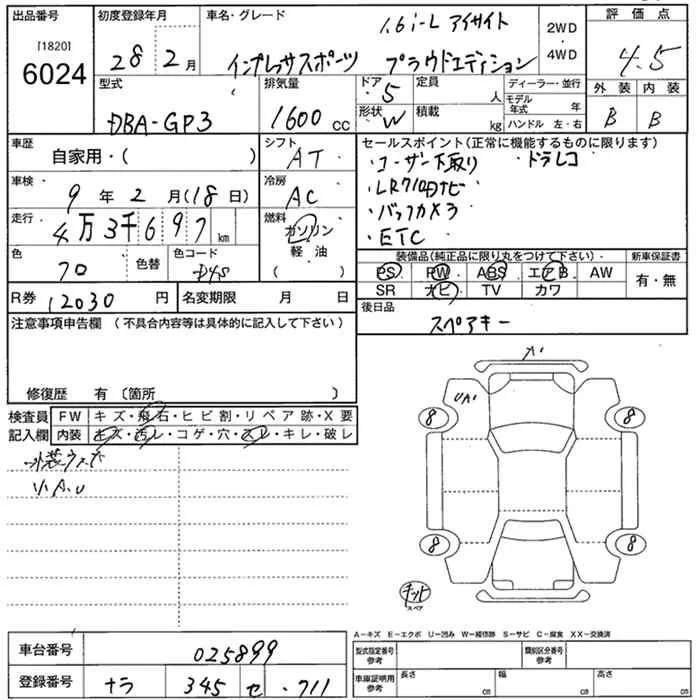 出品番号 初度登録年月 車名・グレード 評価点
[1820] 1.6i-L アイサイト 2WD
6024 28 2月 インプレッサスポーツ プラウドエディション 4WD 4.5
型式 排気量 ドア 5 定員 人 ディーラー・並行 外装 内装
DBA-GP3 1600 CC 形状 W 積載 kg モデル年式 年 B B
ハンドル 左・右
車歴 自家用・( ) シフト AT セールスポイント(正常に機能するものに限ります)
・ユーザー下取り ・ドラレコ
車検 9年 2月(18日) 冷房 AC ・LR710Dナビ
走行 4万3千697km 燃料 ガソリン ・バックカメラ
軽油 ・ETC
色 70 色替 色コード D4S ( ) 装備品(純正品に限り丸をつけて下さい) 新車保証書
PS PW ABS エアB AW 有・無
R券 12030円 名変期限 月 日 SR ナビ TV カワ
注意事項申告欄 (不具合内容等は具体的に記入して下さい) 後日品
スペアキー
修復歴 有 〔箇所 〕
検査員 FW キズ・飛石・ヒビ割・リペア跡・X要
記入欄 内装 キズ・汚レ・コゲ・穴・スレ・キレ・破レ
外装ウスキ
小A.U
A
UA1
8 8
8 8
キット
スペア
A−キズ E−エクボ U−凹み W−補修跡 S−サビ C−腐食 XX−交換済
車台番号 025899 型式指定番号 参考 類別区分番号 参考
登録番号 ナラ 345 せ ・711 車庫証明用 参考 長さ cm 幅 cm 高さ cm